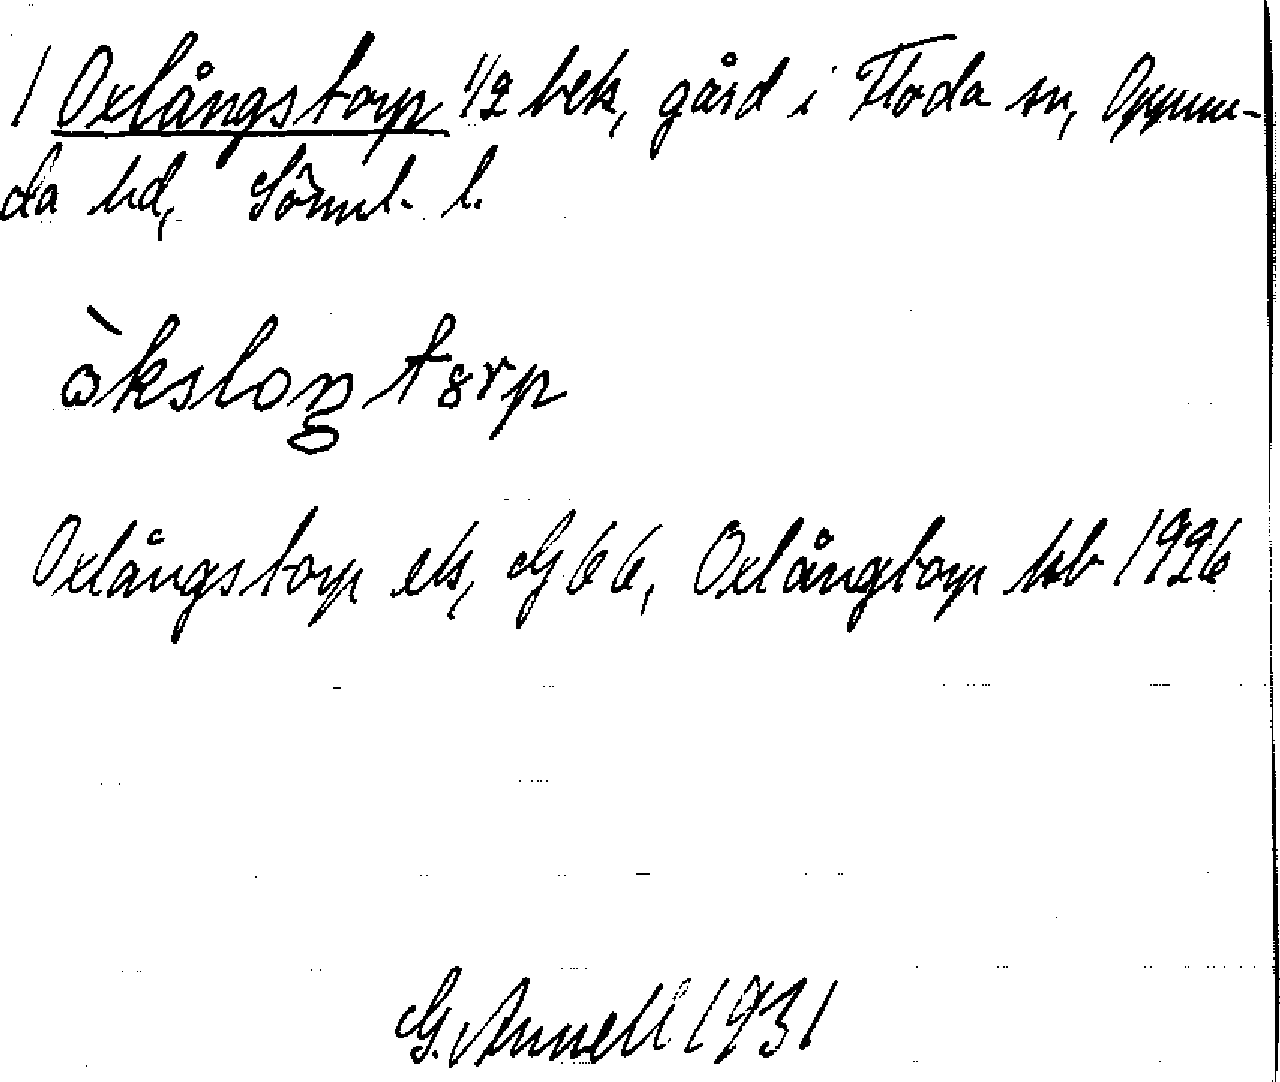 1 Oxlångstorp 1/2 bek, gård i Floda sn, Oppun-
da hd, Sörml. l.
òksloŋtɵrp
Oxlångstorp ek, G 66, Oxlångtorp kb 1926
G. Annell 1931